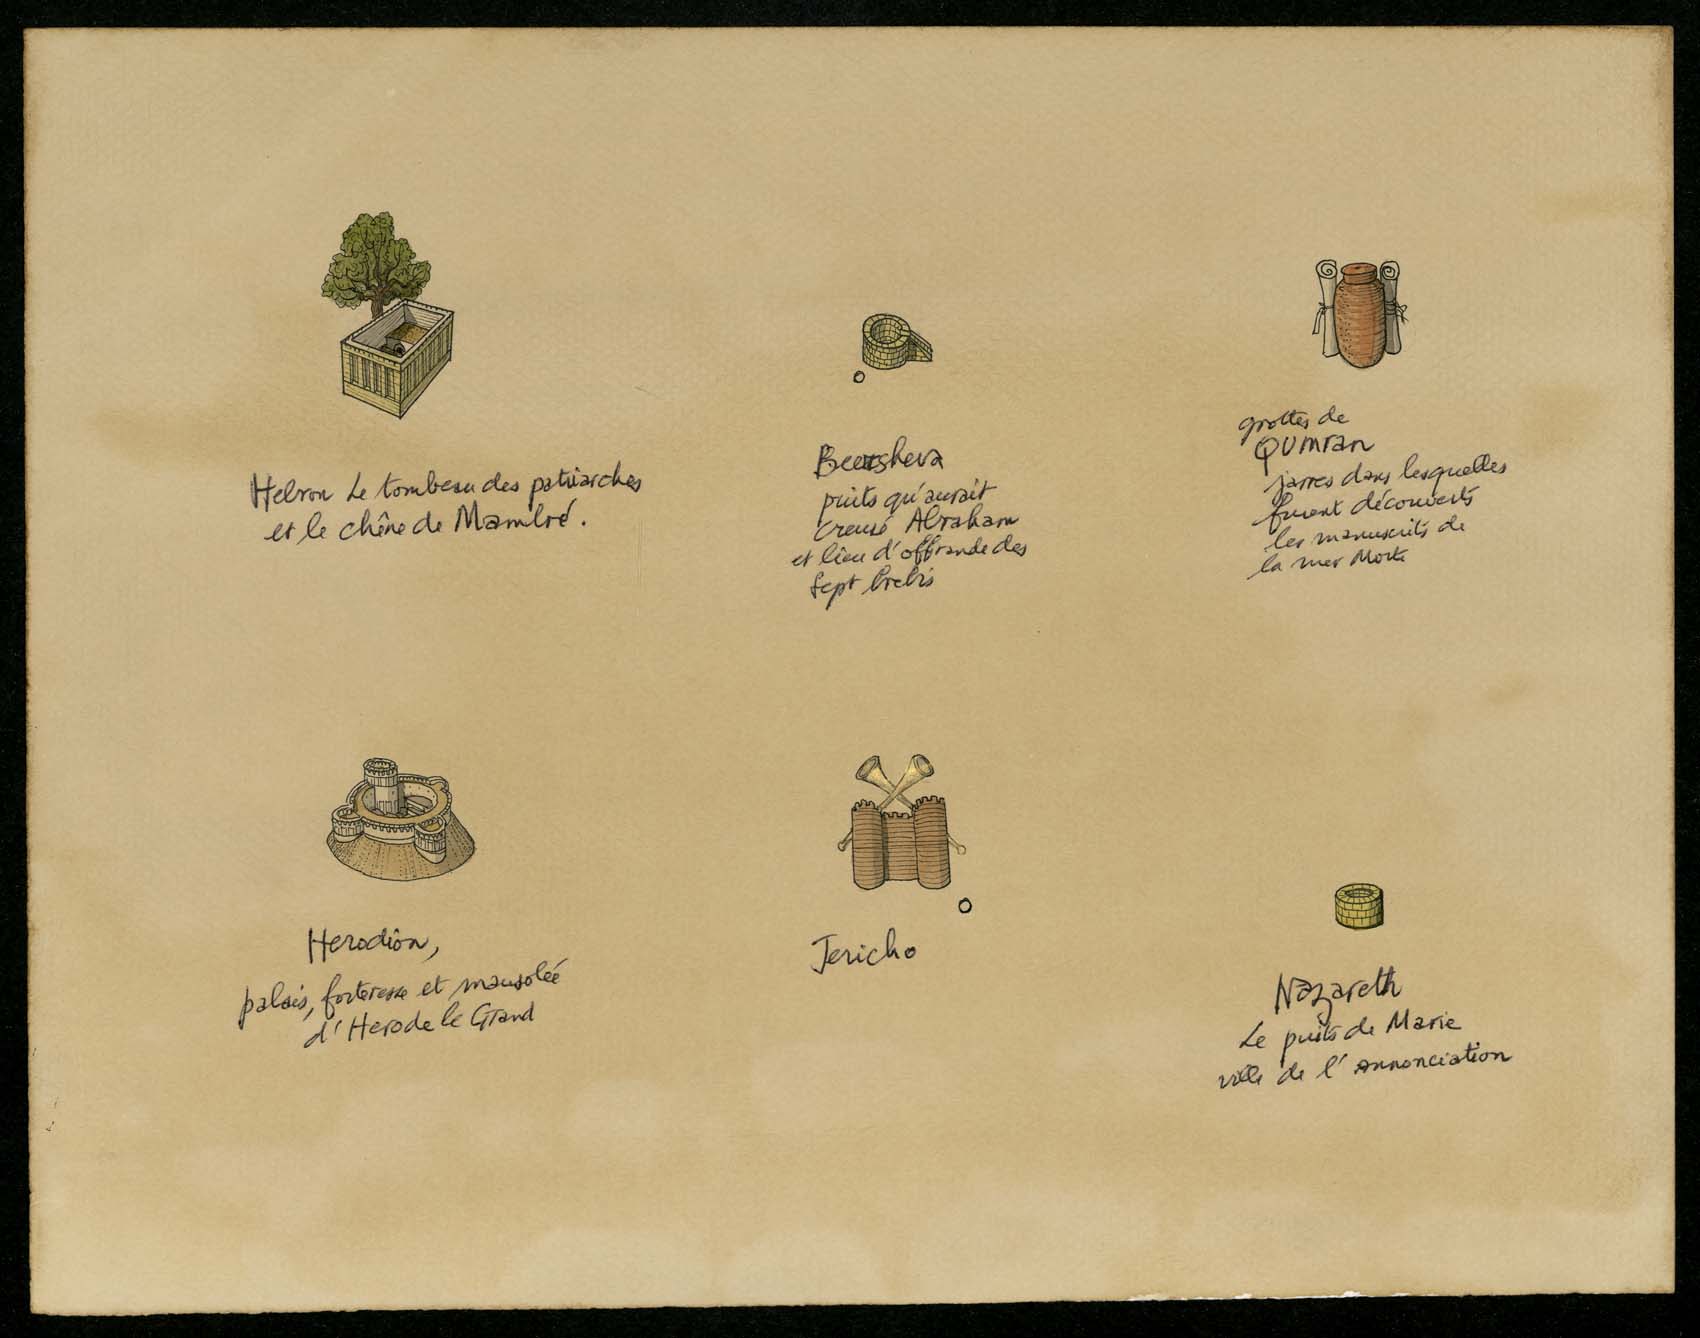 Hebron Le tombeau des patriarches
et le chêne de Mambré.
Beersheva
puits qu'aurait
creusé Abraham
et lieu d'offrande des
sept brebis
grottes de
QUMRan
jarres dans lesquelles
furent découverts
les manuscrits de
la mer Morte
Herodion,
palais, forteresse et mausolée
d'Herode le Grand
Jericho
Nazareth
Le puits de Marie
ville de l'annonciation